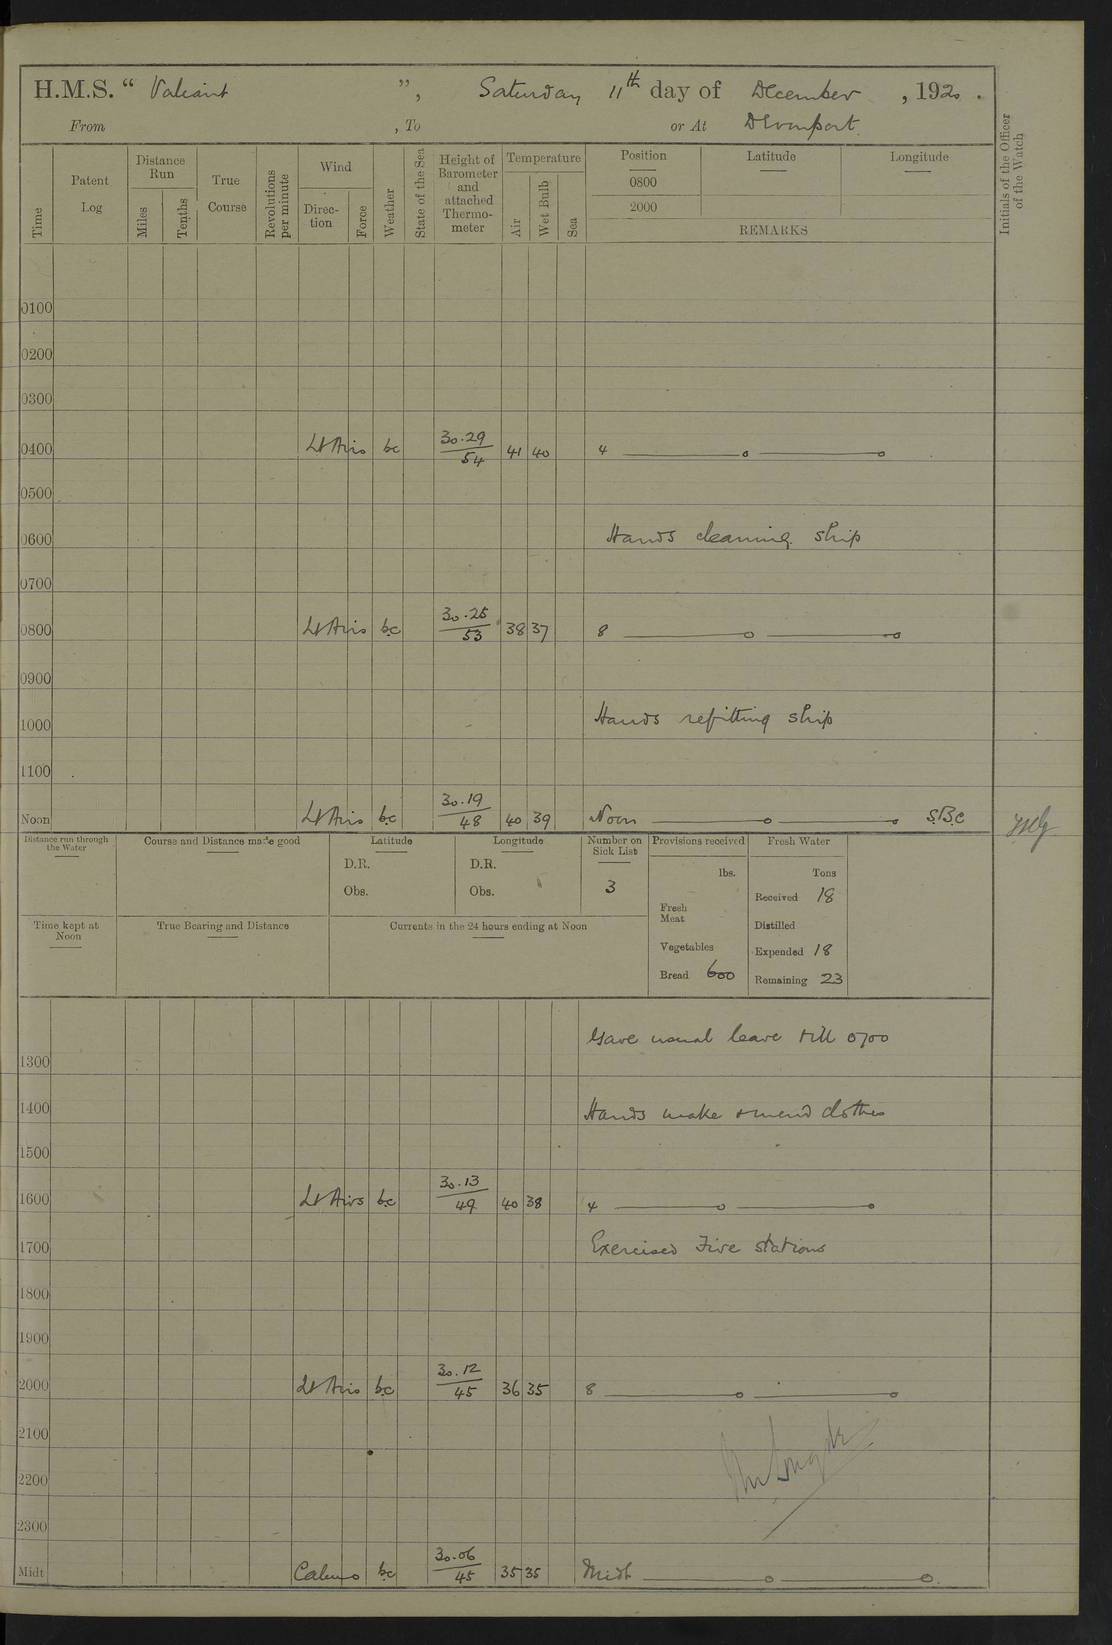 H.M.S. “ Valiant ”, Saturday 11th day of December , 1920 .
From , To or At Devonport
Time Patent Log Distance Run Miles Tenths True Course Revolutions per minute Wind Direc-tion Force Weather State of the Sea Height of Barometer and attached Thermo-meter Temperature Air Wet Bulb Sea Position Latitude Longitude Initials of the Officer of the Watch
0800
2000
REMARKS
0100
0200
0300
0400 Lt Airs bc 30.29 / 54 41 40 4
0500
0600 Hands cleaning ship
0700
0800 Lt Airs bc 30.25 / 53 38 37 8
0900
1000 Hands refitting ship
1100
Noon Lt Airs bc 30.19 / 48 40 39 Noon S.B.C
Distance run through the Water Course and Distance made good Latitude Longitude Number on Sick List Provisions received Fresh Water
D.R. D.R. lbs. Tons
Obs. Obs. 3 Received 18
Fresh Meat
Time kept at Noon True Bearing and Distance Currents in the 24 hours ending at Noon Distilled
Vegetables Expended 18
Bread 600 Remaining 23
Gave usual leave till 0700
1300
1400 Hands make & mend clothes
1500
1600 Lt Airs bc 30.13 / 49 40 38 4
1700 Exercised Fire stations
1800
1900
2000 Lt Airs bc 30.12 / 45 36 35 8
2100
2200
2300
Midt Calms bc 30.06 / 45 35 35 Midt